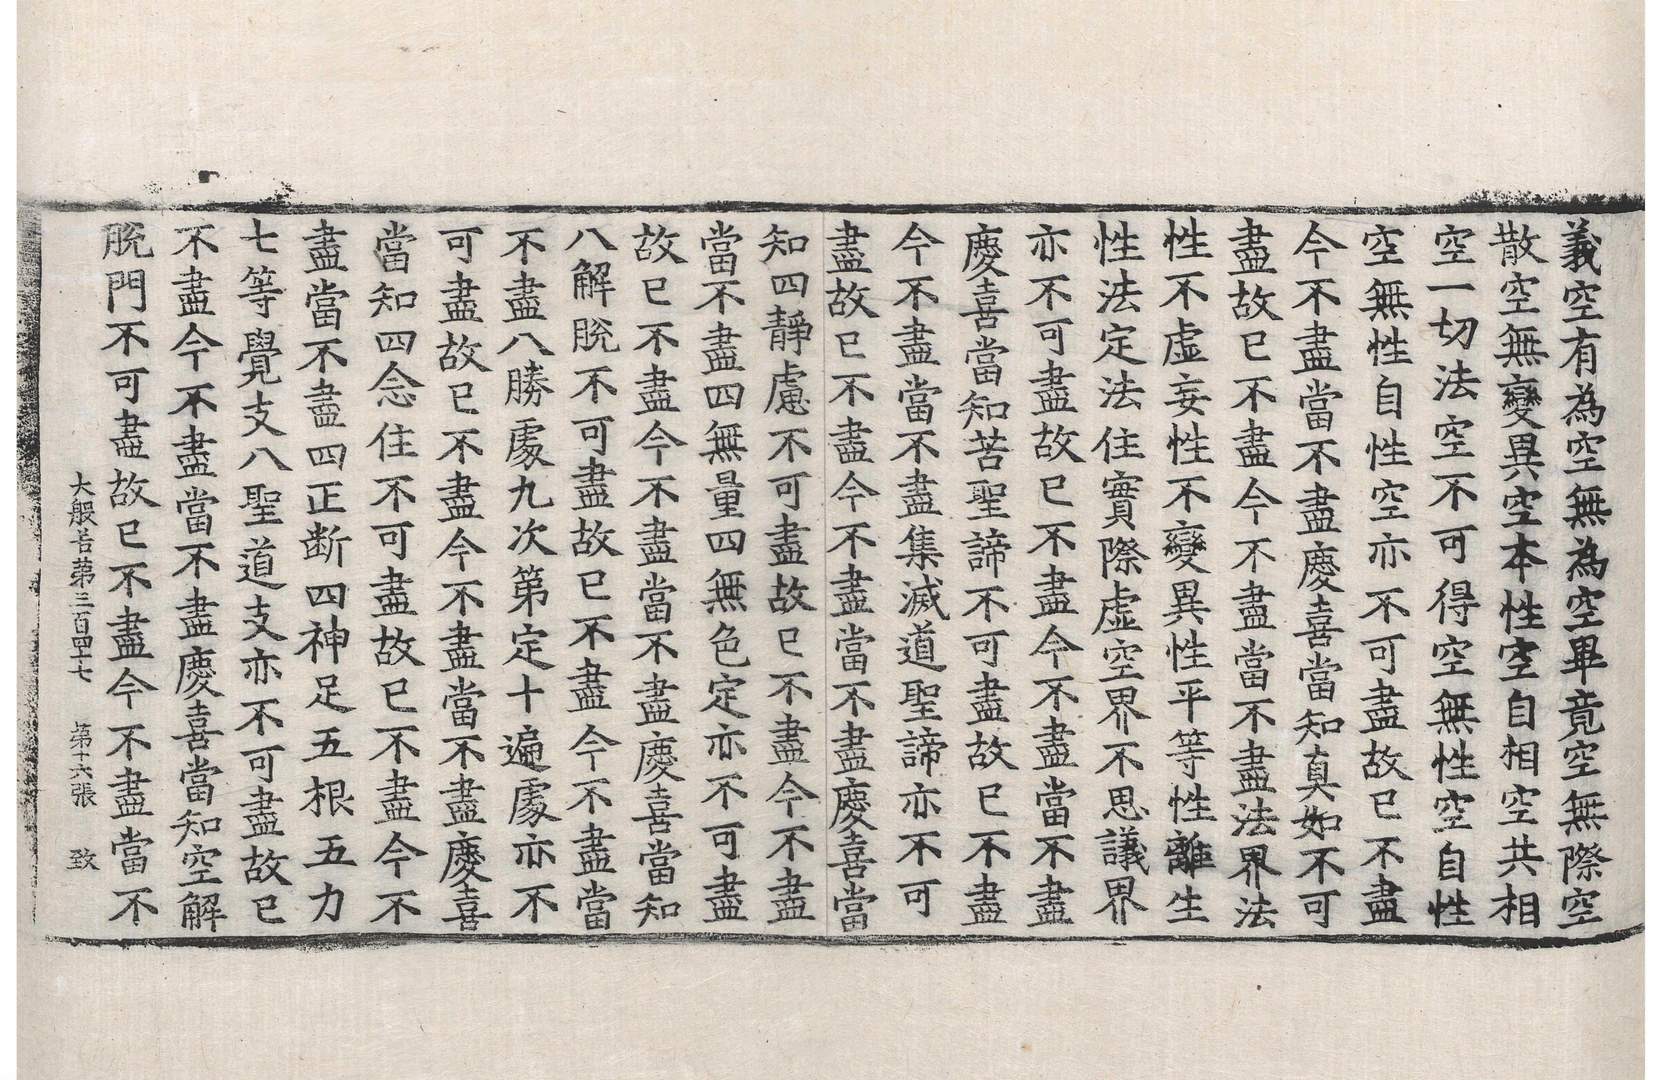 義空有為空無為空畢竟空無際空
散空無變異空本性空自相空共相
空一切法空不可得空無性空自性
空無性自性空亦不可盡故已不盡
今不盡當不盡慶喜當知真如不可
盡故已不盡今不盡當不盡法界法
性不虛妄性不變異性平等性離生
性法定法住實際虛空界不思議界
亦不可盡故已不盡今不盡當不盡
慶喜當知苦聖諦不可盡故已不盡
今不盡當不盡集滅道聖諦亦不可
盡故已不盡今不盡當不盡慶喜當
知四靜慮不可盡故已不盡今不盡
當不盡四無量四無色定亦不可盡
故已不盡今不盡當不盡慶喜當知
八解脫不可盡故已不盡今不盡當
不盡八勝處九次第定十遍處亦不
可盡故已不盡今不盡當不盡慶喜
當知四念住不可盡故已不盡今不
盡當不盡四正断四神足五根五力
七等覺支八聖道支亦不可盡故已
不盡今不盡當不盡慶喜當知空解
脫門不可盡故已不盡今不盡當不
大般若第三百四十七 第十六張 致